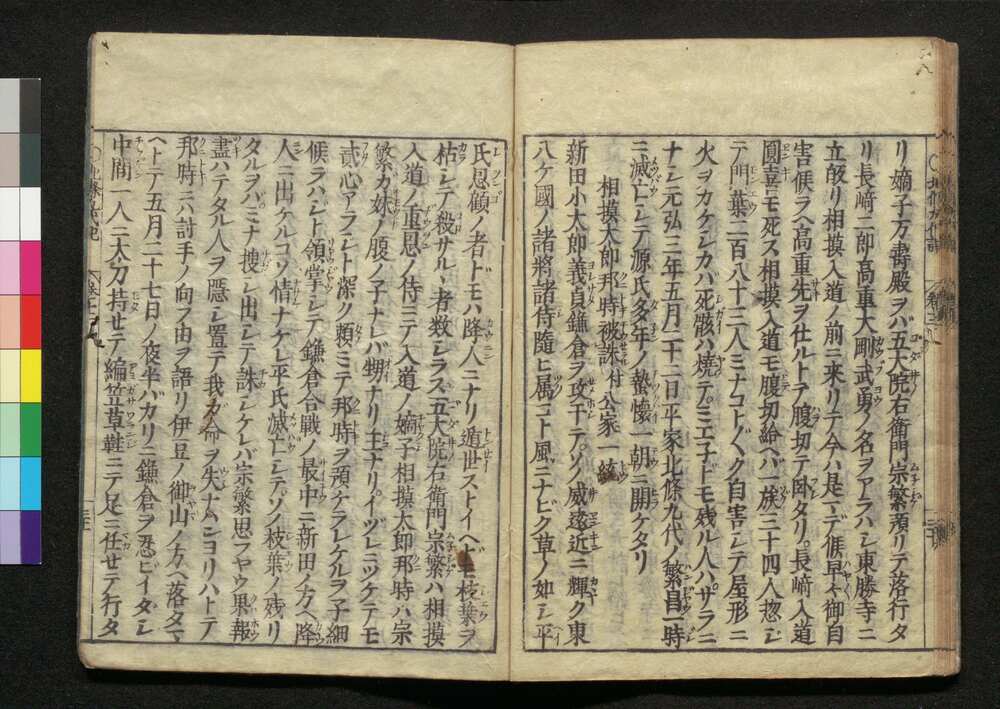 リ嫡子万壽殿ヲバ五大院右衛門宗繁預リテ落行タ
リ長﨑二郎高重大剛武勇ノ名ヲアラハシ東勝寺ニ
立皈リ相摸入道ノ前ニ来リテ今ハ是マデ候早々御自
害候ラヘ高重先ヲ仕ルトテ腹切テ卧タリ長﨑入道
圓喜モ死ス相摸入道モ腹切給ヘバ一族三十四人惣シ
テ門葉二百八十三人ミナコト〴〵ク自害シテ屋形ニ
火ヲカケシカバ死骸ハ焼テミエ子ドモ残ル人ハサラニ
ナシ元弘三年五月二十二日平家北條九代ノ繁昌一時
ニ滅亡シテ源氏多年ノ蟄懐一朝ニ開ケタリ
相摸太郎邦時被誅付公家一統
新田小太郎義貞鎌倉ヲ攻干テソノ威遠近ニ輝ク東
八ケ國ノ諸將諸侍隨ヒ属コト風ニナビク草ノ如シ平
氏恩顧ノ者ドモハ降人ニナリ遁世ストイヘドモ枝葉ヲ
枯シテ殺サルヽ者数シラス五大院右衛門宗繁ハ相摸
入道ノ重恩ノ侍ニテ入道ノ嫡子相摸太郎邦時ハ宗
繁カ妹ノ腹ノ子ナレバ甥ナリ主ナリイヅレニツケテモ
貳心アラシト深ク頼ミテ邦時ヲ預ケラレケルヲ子細
候ラハジト領掌シテ鎌倉合戦ノ最中ニ新田ノ方ヘ降
人ニ出ケルコソ情ナケレ平氏滅亡シテソノ枝葉ノ残リ
タルヲバミナ捜シ出シテ誅シケレバ宗繁思フヤウ果報
盡ハテタル人ヲ隠シ置テ我ガ命ヲ失ナハンヨリハトテ
邦時ニハ討手ノ向フ由ヲ語リ伊豆ノ御山ノ方ヘ落タマ
ヘトテ五月二十七日ノ夜半バカリニ鎌倉ヲ忍ビイダシ
中間一人ニ太刀持セテ編笠草鞋ニテ足ニ任セテ行タ